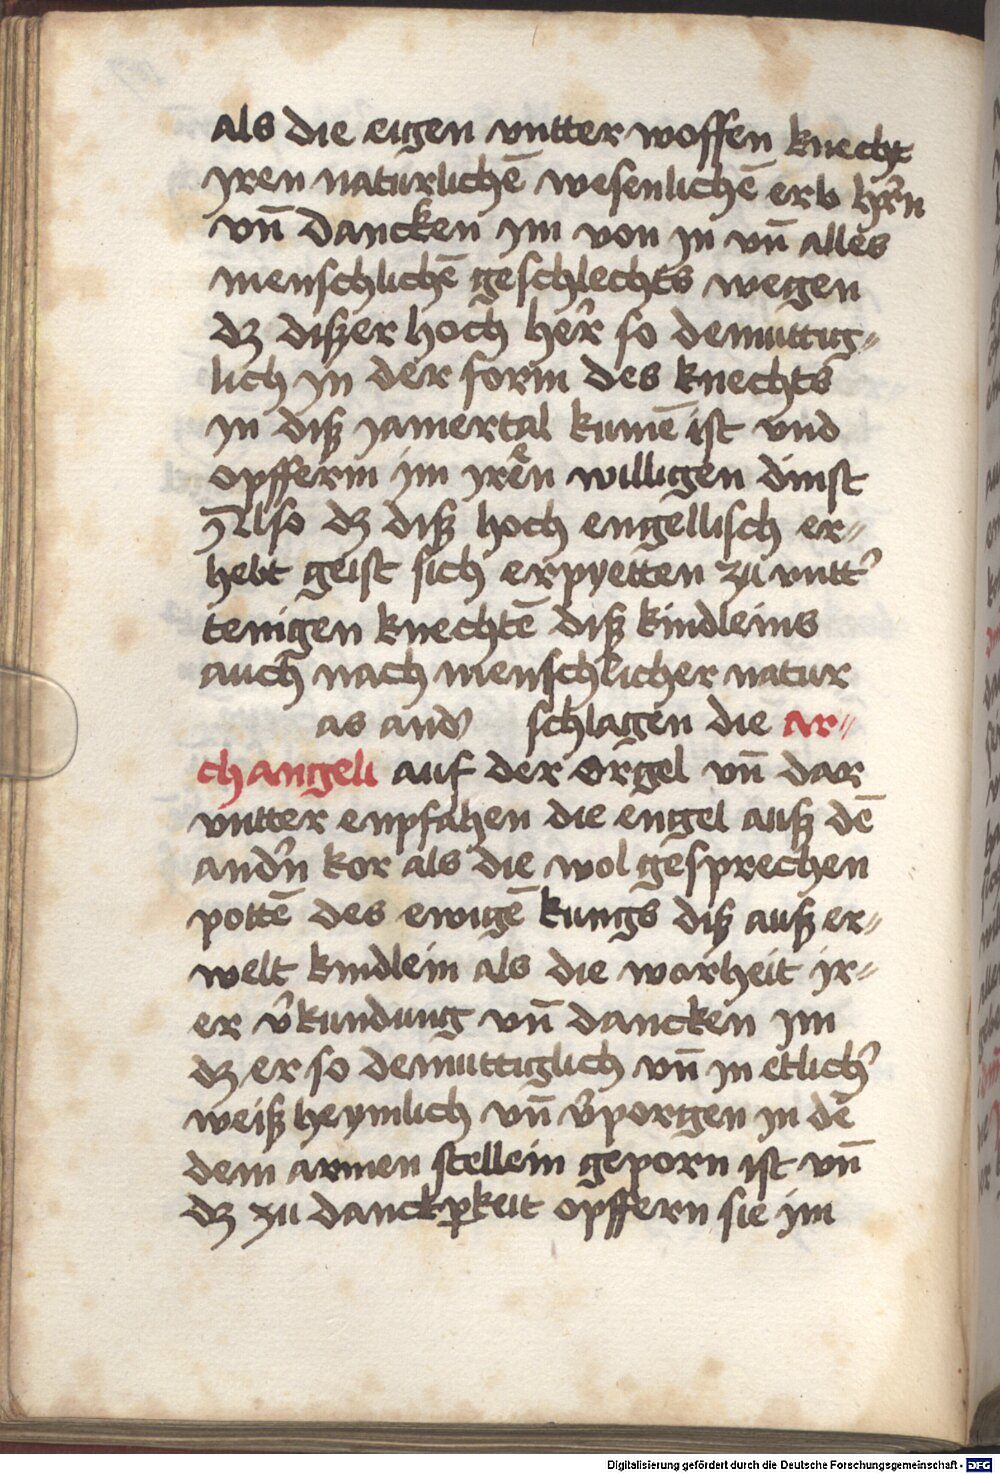 als die eigen vntter woffen knecht
yren naturlichē wesenlichē erb hern̄
vn̄ dancken ym von yn vn̄ alles
menschlichē geschlechts wegen
dz diszer hoch her so demuttig⸗
lich yn der form des knechts
yn disz yamertal kumē ist vnd
opfferm im yren willigen dinst
Also dz disz hoch engellisch er⸗
hebt geist sich erpyetten zu vntt'
tenigen knechtē disz kindleins
auch nach menschlicher natur
as and' schlagen die ar⸗
changeli auf der orgel vn̄ dar
vntter enpfahen die engel ausz dē
andn̄ kor als die wol gesprechen
pottē des ewigē kungs disz ausz er⸗
welt kindlein als die warheit ir⸗
er v'kundung vn̄ dancken ym
dz er so demuttiglich vn̄ yn etlich'
weisz heymlich vn̄ v'porgen yn dē
dem armen stellein geporn ist vn̄
dz zu danckꝑkeit opffern sie ym
Digitalisierung gefördert durch die Deutsche Forschungsgemeinschaft - DFG